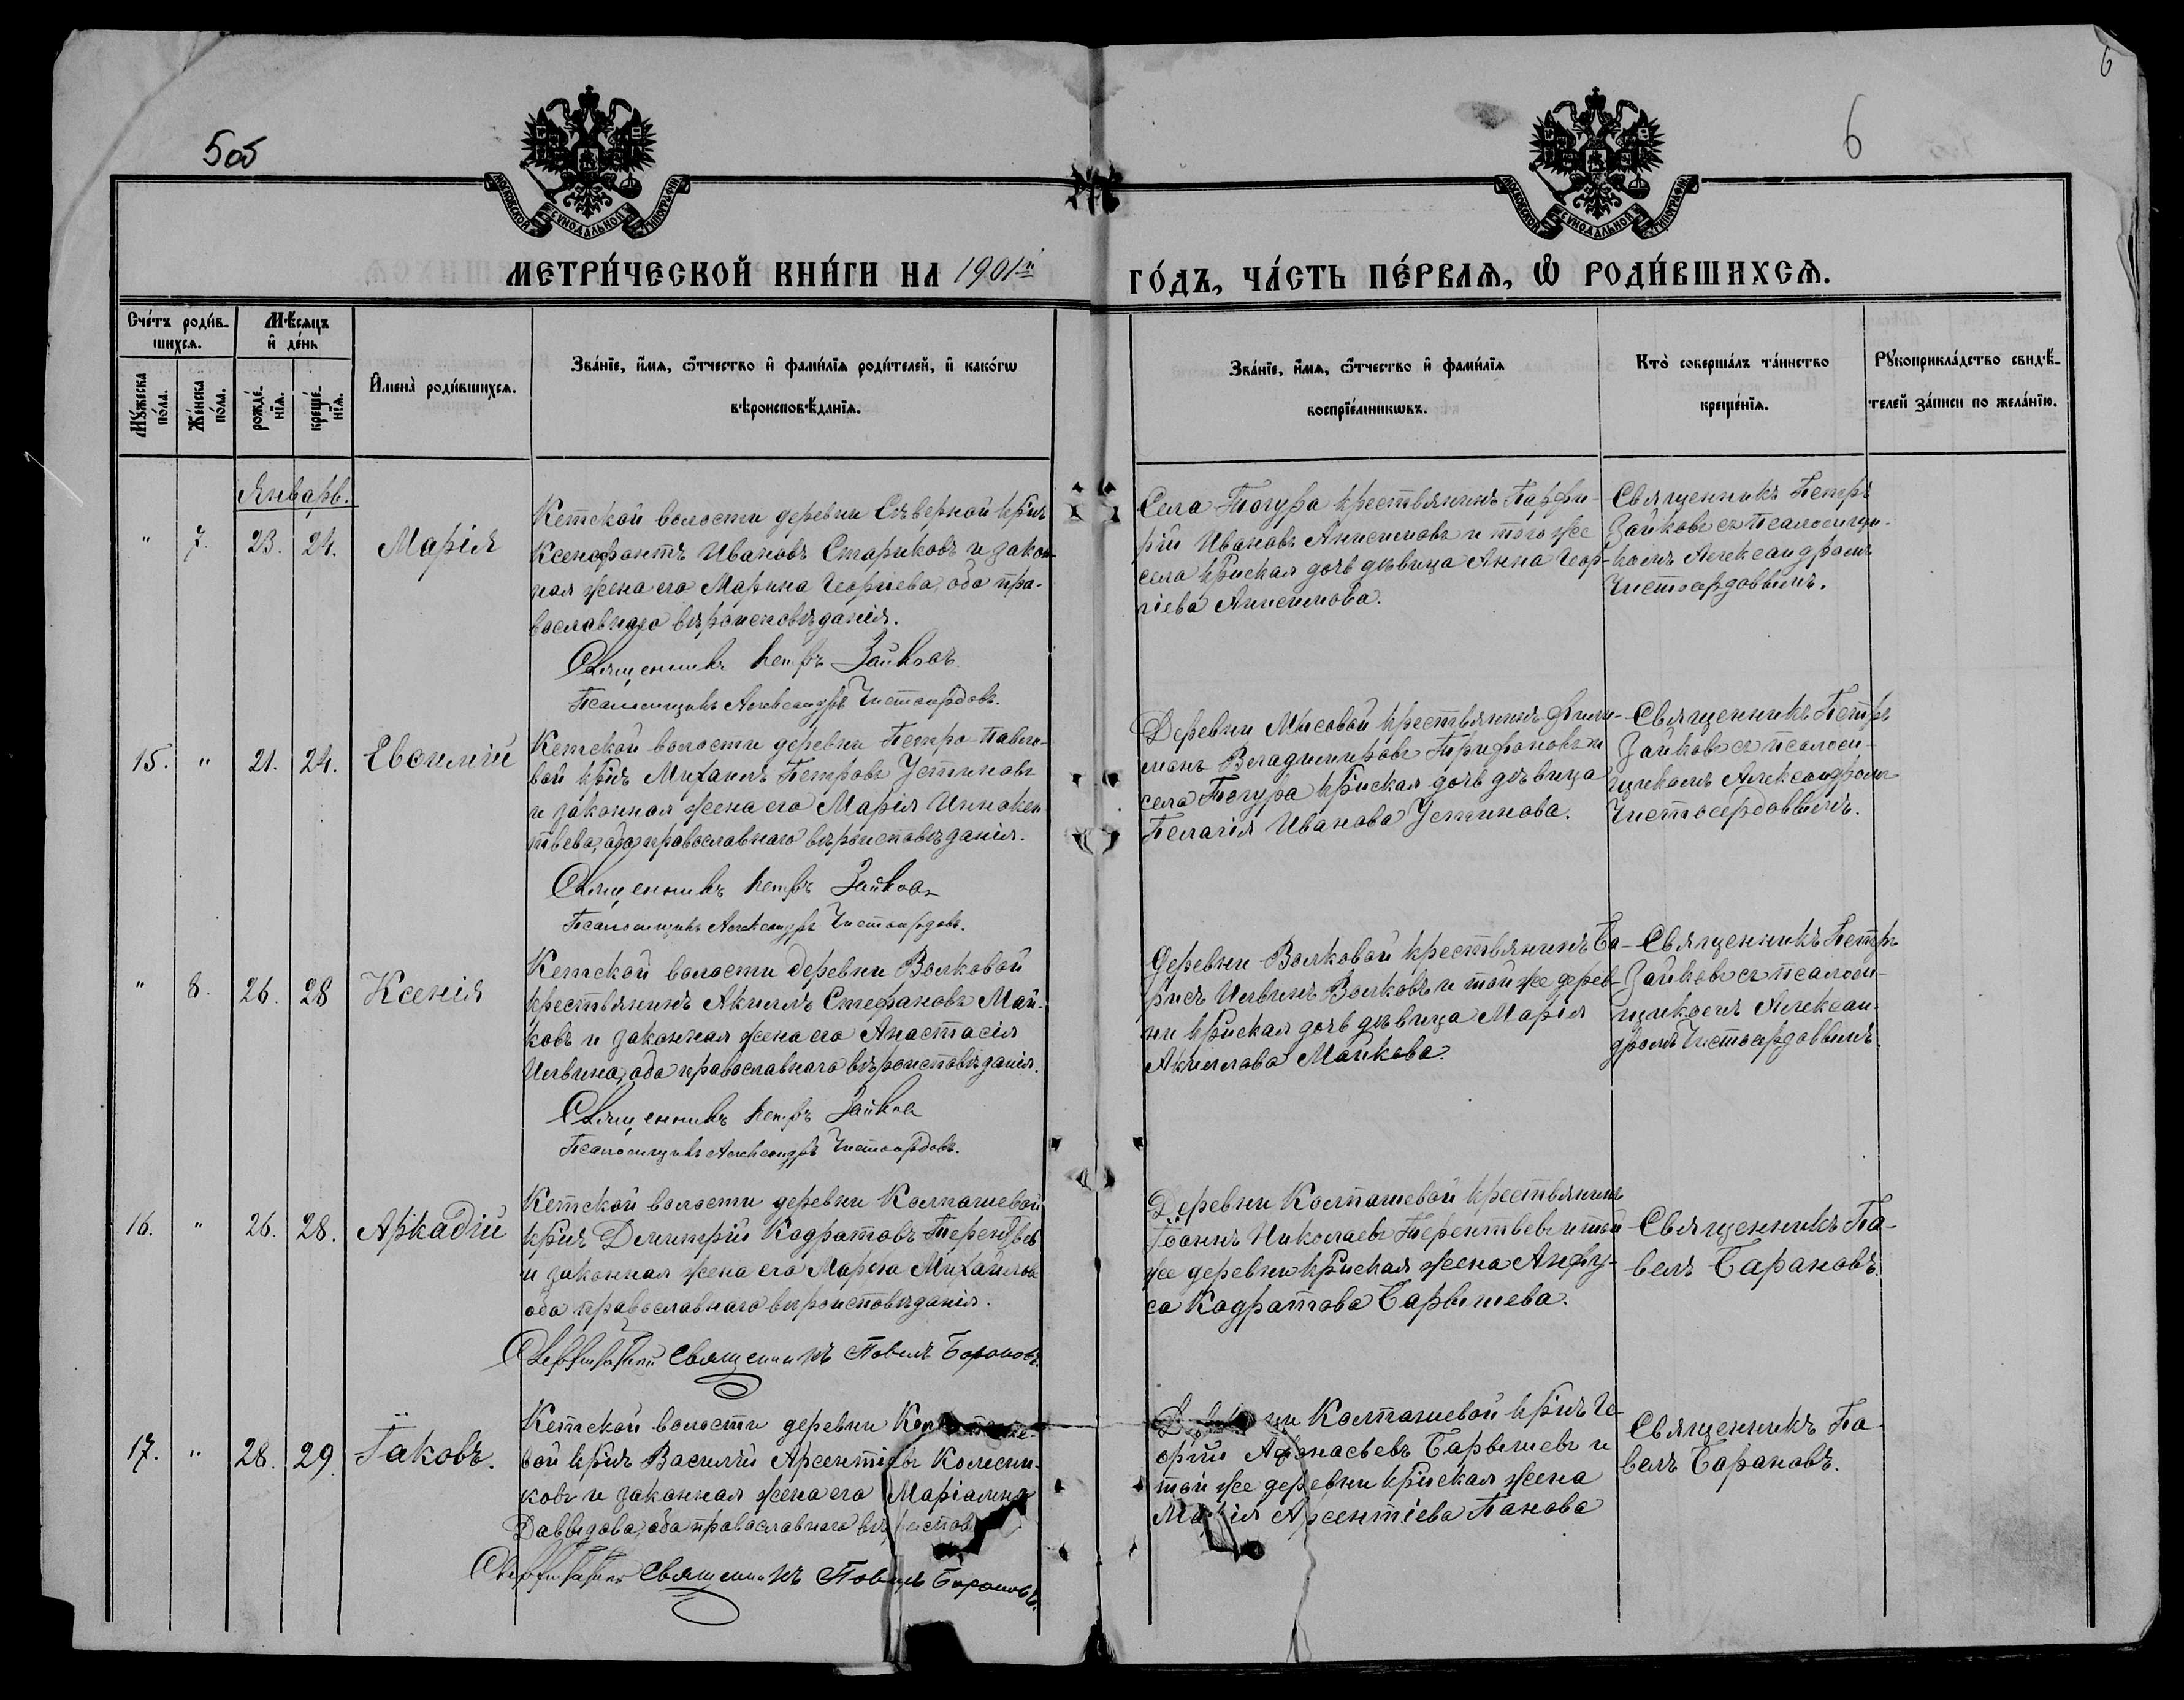 5об
6
6
МОСКОВСКОЙ СѴНОДАЛЬНОЙ ТИПОГРАФІИ
МОСКОВСКОЙ СѴНОДАЛЬНОЙ ТИПОГРАФІИ
МЕТРИ́ЧЕСКОЙ КНИ́ГИ НА 1901й
ГО́ДЪ, ЧА́СТЬ ПЕ́РВАѦ, Ѡ҆ РОДИ́ВШИХСѦ.
Сче́тъ роди́в-
шихсѧ.
Мѣ́сѧцъ
и҆ де́нь
Мꙋ́жеска
по́ла.
Же́нска
по́ла.
рожде́-
нїѧ.
креще́-
нїѧ.
И҆мена̀ роди́вшихсѧ.
Зва́нїе, и҆́мѧ, ѻ҆́тчество и҆ фами́лїѧ роди́телей, и҆ како́гѡ
вѣроисповѣ́данїѧ.
Зва́нїе, и҆́мѧ, ѻ҆́тчество и҆ фами́лїѧ
воспрїе́мникѡвъ.
Кто̀ соверша́лъ та́инство
креще́нїѧ.
Рꙋкоприкла́дство свидѣ́-
телей за́писи по жела́нїю.
Январь.
" 7. 23. 24. Марія
Кетской волости деревни Сѣверной кр̃нъ
Ксенофонтъ Ивановъ Стариковъ и закон-
ная жена его Марина Георгіева, оба пра-
вославнаго вѣроисповѣданія.
Священникъ Петръ Зайковъ
Псаломщикъ Александръ Чистосердовъ.
Села Тогура крестьянинъ Парфи-
рій Ивановъ Анисимовъ и того же
села кр̃нская дочь дѣвица Анна Геор-
гіева Анисимова.
Священникъ Петръ
Зайковъ съ псаломщи-
комъ Александромъ
Чистосердовымъ.
15. " 21. 24. Евѳимій
Кетской волости деревни Петро-Павло-
вой кр̃нъ Михаилъ Петровъ Устиновъ
и законная жена его Марія Иннокен-
тьева, оба православнаго вѣроисповѣданія.
Священникъ Петръ Зайковъ
Псаломщикъ Александръ Чистосердовъ.
Деревни Мысовой крестьянинъ Фили-
монъ Владимировъ Трифоновъ и
села Тогура кр̃нская дочь дѣвица
Пелагія Иванова Устинова.
Священникъ Петръ
Зайковъ съ псалом-
щикомъ Александромъ
Чистосердовымъ.
" 8. 26. 28 Ксенія
Кетской волости деревни Волковой
крестьянинъ Акиллъ Стефановъ Май-
ковъ и законная жена его Анастасія
Ильина, оба православнаго вѣроисповѣданія.
Священникъ Петръ Зайковъ
Псаломщикъ Александръ Чистосердовъ.
Деревни Волковой крестьянинъ Бо-
рисъ Ильинъ Волковъ и той же дерев-
ни кр̃нская дочь дѣвица Марія
Акиллова Майкова.
Священникъ Петръ
Зайковъ съ псалом-
щикомъ Алексан-
дромъ Чистосердовымъ.
16. " 26. 28. Аркадій
Кетской волости деревни Колпашевой
кр̃нъ Димитрій Кодратовъ Терентьев
и законная жена его Марѳа Михайлова
оба православнаго вѣроисповѣданія.
Священникъ Павелъ Барановъ.
Деревни Колпашевой крестьянинъ
Іоаннъ Николаевъ Терентьевъ и той
же деревни кр̃нская жена Анфу-
са Кодратова Барышева.
Священникъ Па-
велъ Барановъ.
17. " 28. 29. Іаковъ.
Кетской волости деревни Колпаше-
вой кр̃нъ Василій Арсентіевъ Колесни-
ковъ и законная жена его Маріамна
Давыдова, оба православнаго вѣроиспов
Священникъ Павелъ Барановъ.
Деревни Колпашевой кр̃нъ Ге-
оргій Афонасьевъ Барышевъ и
той же деревни кр̃нская жена
Марія Арсентіева Панова
Священникъ Па-
велъ Барановъ.